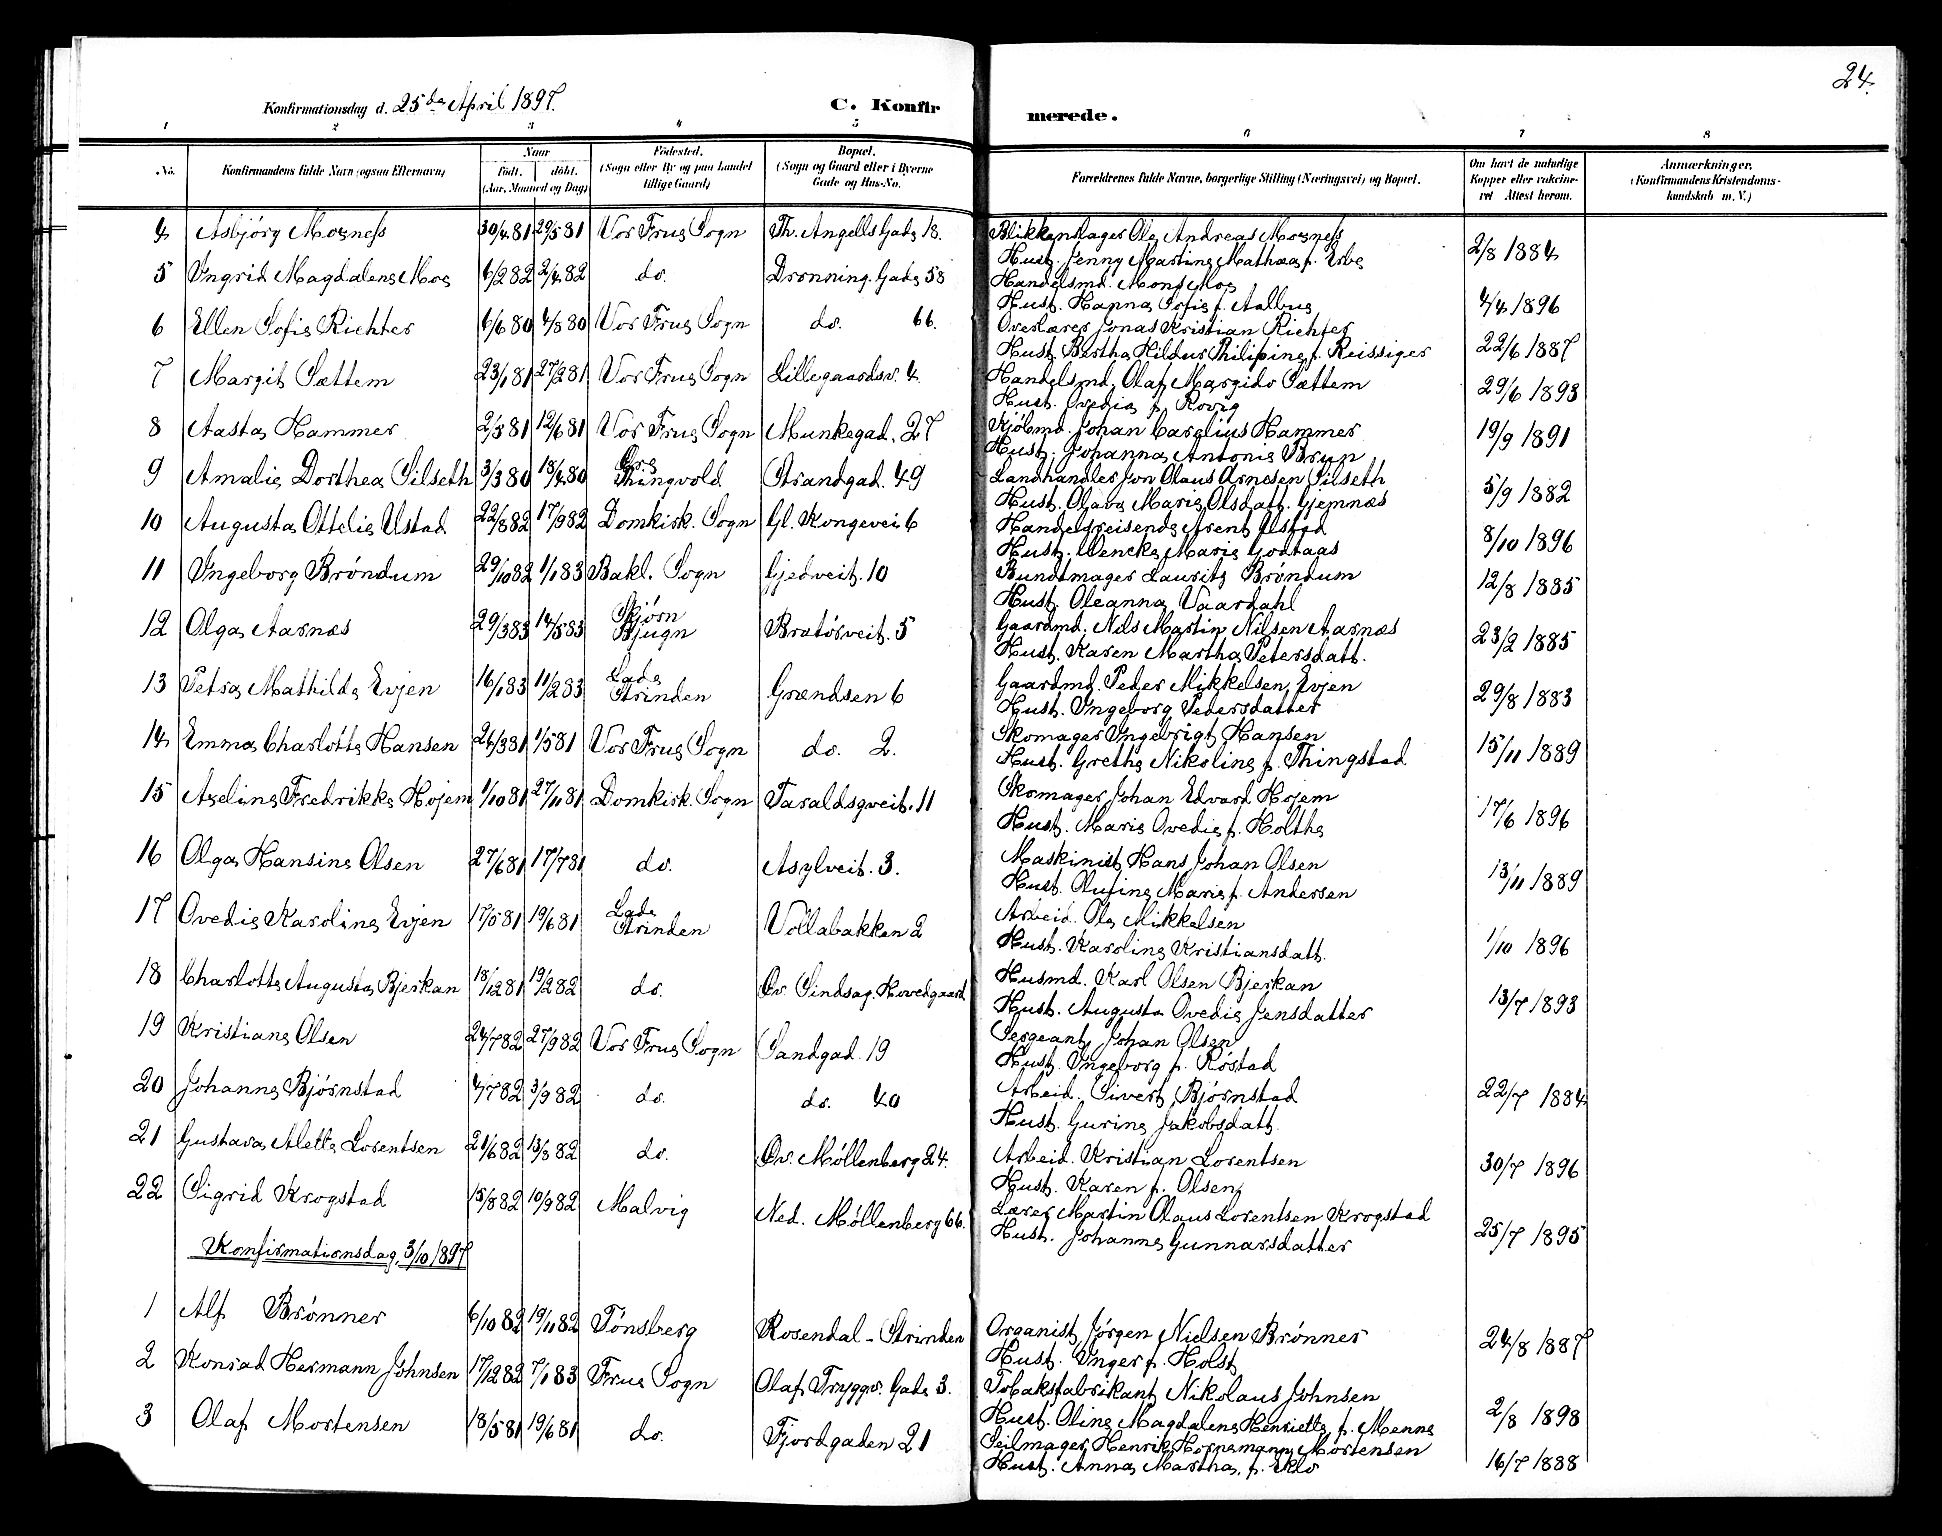 24.
Konfirmationsdag d. 25de April 1897.
C. Konfirmerede.
1 2 3 4 5 6 7 8
No. Konfirmandens fulde Navn (ogsaa Efternavn) Naar født. døbt. (Aar, Maaned og Dag) Fødested. (Sogn eller By og paa Landet tillige Gaard) Bopæl. (Sogn og Gaard eller i Byerne Gade og Hus-No. Forældrenes fulde Navne, borgerlige Stilling (Næringsvei) og Bopæl. Om havt de naturlige Kopper eller vaccineret. Attest herom. Anmærkninger. (Konfirmandens Kristendomskundskab m. V.)
4 Asbjørg Mosness 30/4 81 29/5 81 Vor Frue Sogn Th. Angells Gade 18. Blikkenslager Ole Andreas Mosness 2/8 1884
Hust. Jenny Martine Mathea f.
5 Ingrid Magdalene Moe 6/2 82 2/4 82 do. Dronning. Gade 58 Handelsmd. Mons Moe 4/4 1896
Hust. Hanna Sofie f. Aalbu
6 Ellen Sofie Richter 6/6 80 4/8 80 Vor Frue Sogn do. 66. Overlærer Jonas Kristian Richter 22/6 1887
Hust. Bertha Hildur Philipine f. Reissiger
7 Margit Sættem 23/1 81 27/2 81 Vor Frue Sogn Lillegaardsv. 4. Handelsmd. Olaf Margido Sættem 29/6 1893
Hust. Ovedia f. Rovig
8 Aasta Hammer 2/3 81 12/6 81 Vor Frue Sogn Munkegad. 27 Kjøbmd. Johan Carelius Hammer 19/9 1891
Hust. Johanna Antonie Brun
9 Amalie Dorthea Silseth 3/3 80 18/4 80 Thingvold Strandgad. 49 Landhandler Jon Olaus Arnesen Silseth 5/9 1882
Hust. Olava Marie Olsdatt. Gjemnæs
10 Augusta Ottelie Ustad 22/8 82 17/9 82 Domkirk. Sogn Gl. Kongevei 6 Handelsreisende Arent Ustad 8/10 1896
Hust. Wencke Marie Godtaas
11 Ingeborg Brøndum 29/10 82 1/1 83 Bakl. Sogn Gjedveit. 10 Bundtmager Laurits Brøndum 12/8 1885
Hust. Oleanna Vaardahl
12 Olga Aarnæs 29/3 83 14/5 83 Skjørn Bjugn Bratørveit. 5 Gaardmd. Nils Martin Nilsen Aarnæs 23/2 1885
Hust. Karen Martha Petersdatt.
13 Petra Mathilde Evjen 16/1 83 11/2 83 Lade Strinden Grændsen 6 Gaardmd. Peder Mikkelsen Evjen 29/8 1883
Hust. Ingeborg Pedersdatter
14 Emma Charlotte Hansen 24/3 81 1/5 81 Vor Frue Sogn do. 2. Skomager Ingebrigt Hansen 15/11 1889
Hust. Grethe Nikoline f. Thingstad
15 Axeline Fredrikke Hojem 1/10 81 27/11 81 Domkirk. Sogn Taraldsgveit. 11 Skomager Johan Edvard Hojem 17/6 1896
Hust. Marie Ovedie f. Holthe
16 Olga Hansine Olsen 27/6 81 17/7 81 do. Asylveit. 3. Maskinist Hans Johan Olsen 13/11 1889
Hust. Olufine Marie f. Andersen
17 Ovedie Karoline Evjen 17/5 81 19/6 81 Lade Strinden Vollabakken 2 Arbeid. Ole Mikkelsen 1/10 1896
Hust. Karoline Kristiansdatt.
18 Charlotte Augusta Bjerkan 18/12 81 19/2 82 do. Øv. Sindsag. Hovedgaard Husmd. Karl Olsen Bjerkan 13/7 1893
Hust. Augusta Ovedie Jensdatter
19 Kristiane Olsen 24/7 82 27/9 82 Vor Frue Sogn Sandgad. 19 Sergeant Johan Olsen
Hust. Ingeborg f. Røstad
20 Johanne Bjørnstad 4/7 82 3/9 82 do. do. 40 Arbeid. Sivert Bjørnstad 22/7 1884
Hust. Gurine Jakobsdatt.
21 Gustava Alette Lorentsen 21/6 82 13/8 82 do. Øv. Møllenberg 24. Arbeid. Kristian Lorentsen 30/7 1896
Hust. Karen f. Olsen
22 Sigrid Krogstad 15/8 82 10/9 82 Malvig Ned. Møllenberg 66. Lærer Martin Olaus Lorentsen Krogstad 25/7 1895
Hust. Johanne Gunnarsdatter
Konfirmationsdag, 3/10 1897
1 Alf Brønner 6/10 82 19/11 82 Tønsberg Rosendal - Strinden Organist Jørgen Nielsen Brønner 24/8 1887
Hust. Inger f. Holst
2 Konrad Hermann Johnsen 17/12 82 7/1 83 Frue Sogn Olaf Tryggv. Gade 3. Tobaksfabrikant Nikolaus Johnsen 2/8 1898
Hust. Oline Magdalene Henriette f. Menne
3 Olaf Mortensen 18/5 81 19/6 81 do. Fjordgaden 21 Seilmager Henrik Hornemann Mortensen 16/7 1888
Hust. Anna Martha f. Eklo